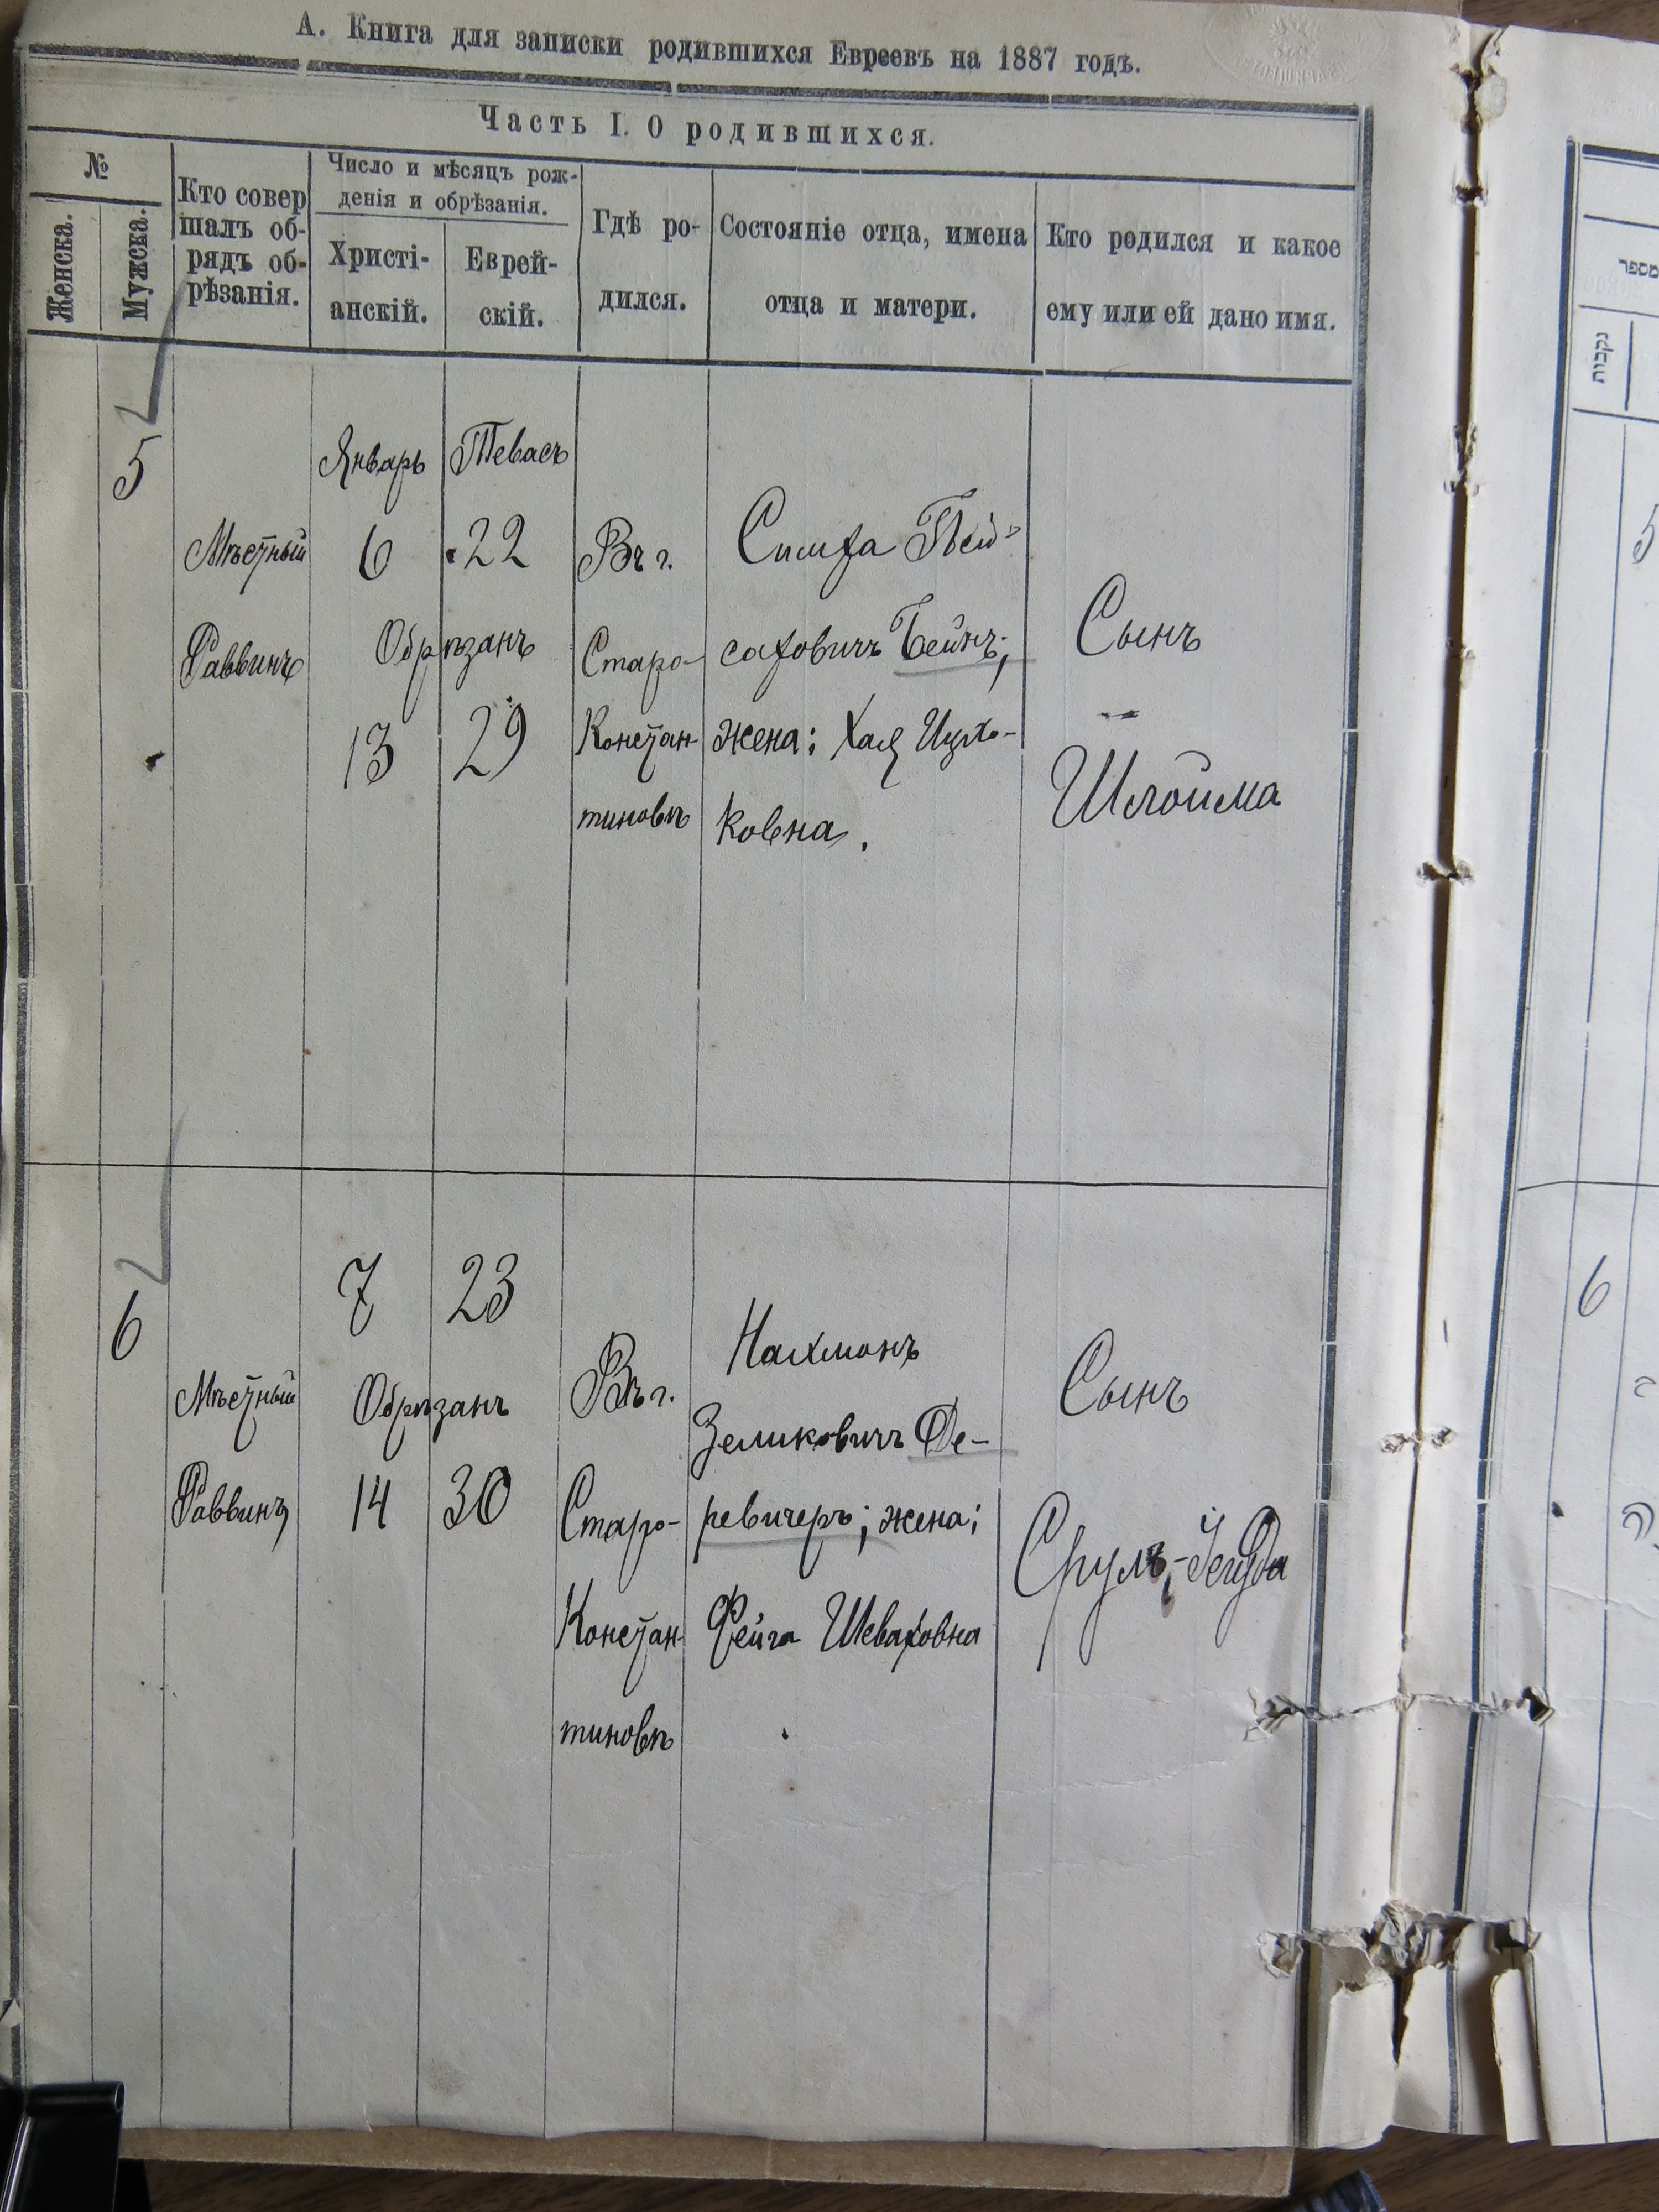 А. Книга для записки родившихся Евреевъ на 1887 годъ.
Часть I. О родившихся.
№
Женска.
Мужска.
Кто совер
шалъ об-
рядъ об-
рѣзанія.
Число и мѣсяцъ рож-
денія и обрѣзанія.
Христі-
анскій.
Еврей-
скій.
Гдѣ ро-
дился.
Состояніе отца, имена
отца и матери.
Кто родился и какое
ему или ей дано имя.
5
Мѣстный
Раввинъ
Январь
6
Тевасъ
22
Обрѣзанъ
13
29
Въ г.
Старо-
Констан-
тиновѣ
Симха Пей-
саховичъ Бейнъ;
жена: Хая Ицхо-
ковна.
Сынъ
Шлойма
6
Мѣстный
Раввинъ
7
23
Обрѣзанъ
14
30
Въ г.
Старо-
Констан-
тиновѣ
Нахманъ
Зеликовичъ Де-
ревичеръ; жена:
Фейга Шеваховна
Сынъ
Сруль-Іегуда
מספר
נקבות
5
6